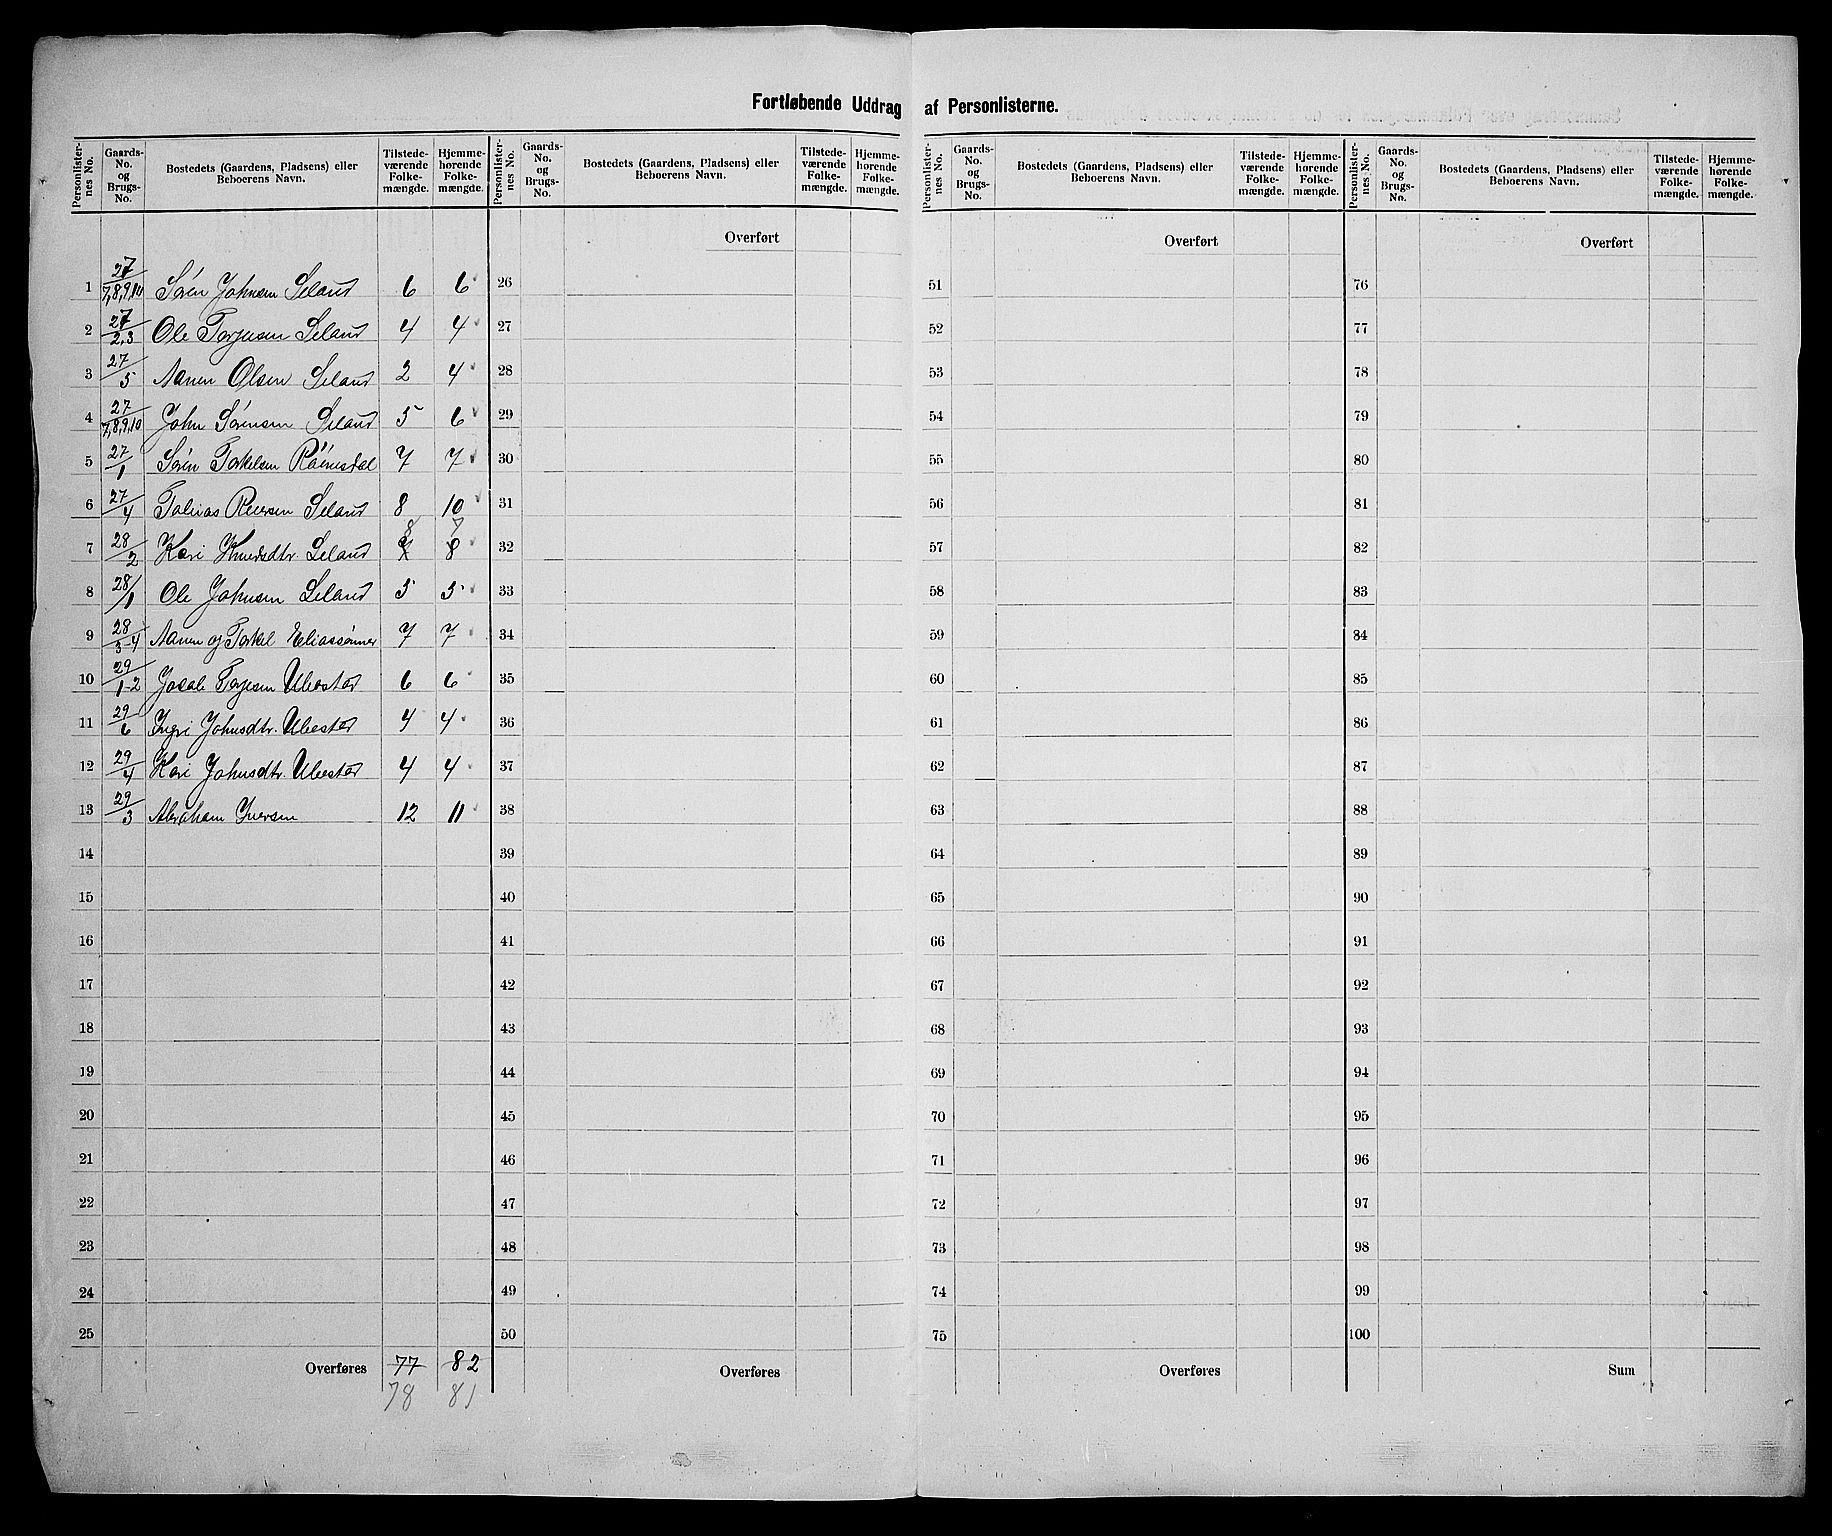 Fortløbende Uddrag af Personlisterne.
Personlisternes No. Gaards-No. og Brugs-No. Bostedets (Gaardens, Pladsens) eller Beboerens Navn. Tilstedeværende Folkemængde. Hjemmehørende Folkemængde.
Personlisternes No. Gaards-No. og Brugs-No. Bostedets (Gaardens, Pladsens) eller Beboerens Navn. Tilstedeværende Folkemængde. Hjemmehørende Folkemængde.
Personlisternes No. Gaards-No. og Brugs-No. Bostedets (Gaardens, Pladsens) eller Beboerens Navn. Tilstedeværende Folkemængde. Hjemmehørende Folkemængde.
Personlisternes No. Gaards-No. og Brugs-No. Bostedets (Gaardens, Pladsens) eller Beboerens Navn. Tilstedeværende Folkemængde. Hjemmehørende Folkemængde.
Overført Overført Overført
1 27/7,8,9,10 Sören Johnsen Seland 6 6 26 51 76
2 27/2,3 Ole Torjusen Seland 4 4 27 52 77
3 27/5 Aanen Olsen Seland 2 4 28 53 78
4 27/7,8,9,10 John Sörensen Seland 5 6 29 54 79
5 27/1 Sören Torkelsen Röinesdal 7 7 30 55 80
6 27/4 Tobias Reiersen Seland 8 10 31 56 81
8 7
7 28/2 Kari Knudsdtr. Seland 7 8 32 57 82
8 28/1 Ole Johnsen Seland 5 5 33 58 83
9 28/3-4 Aanen og Torkel Eliassönner 7 7 34 59 84
10 29/1-2 Jacob Torjusen Ubostad 6 6 35 60 85
11 29/6 Ingri Johnsdtr. Ubostad 4 4 36 61 86
12 29/4 Kari Johnsdtr. Ubostad 4 4 37 62 87
13 29/3 Abraham Iversen 12 11 38 63 88
14 39 64 89
15 40 65 90
16 41 66 91
17 42 67 92
18 43 68 93
19 44 69 94
20 45 70 95
21 46 71 96
22 47 72 97
23 48 73 98
24 49 74 99
25 50 75 100
Overføres 77 82 Overføres Overføres Sum
78 81